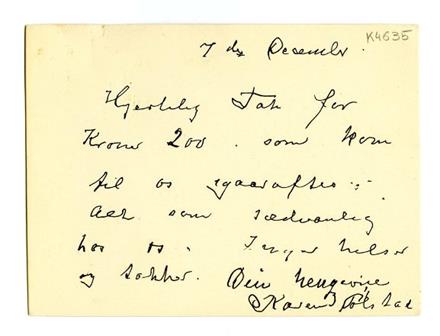 K4635
7 de December.
Hjertelig Tak for
Kroner 200. som kom
til os igaaraftes :-
alt som sædvanlig
hos os. Inger hilser
og takker. Din hengivne
Karen Bolstad